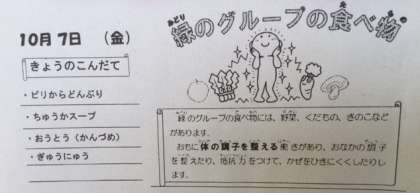 みどり　　　　　　　　た　もの
緑のグループの食べ物
10月7日　（金）
きょうのこんだて
・ピリからどんぶり
・ちゅうかスープ
・おうとう（かんづめ）
・ぎゅうにゅう
緑のグループの食べ物には、野菜、くだもの、きのこなど
があります。
おもに体の調子を整える働きがあり、おなかの調子
を整えたり、抵抗力をつけて、かぜをひきにくくしたりし
ます。